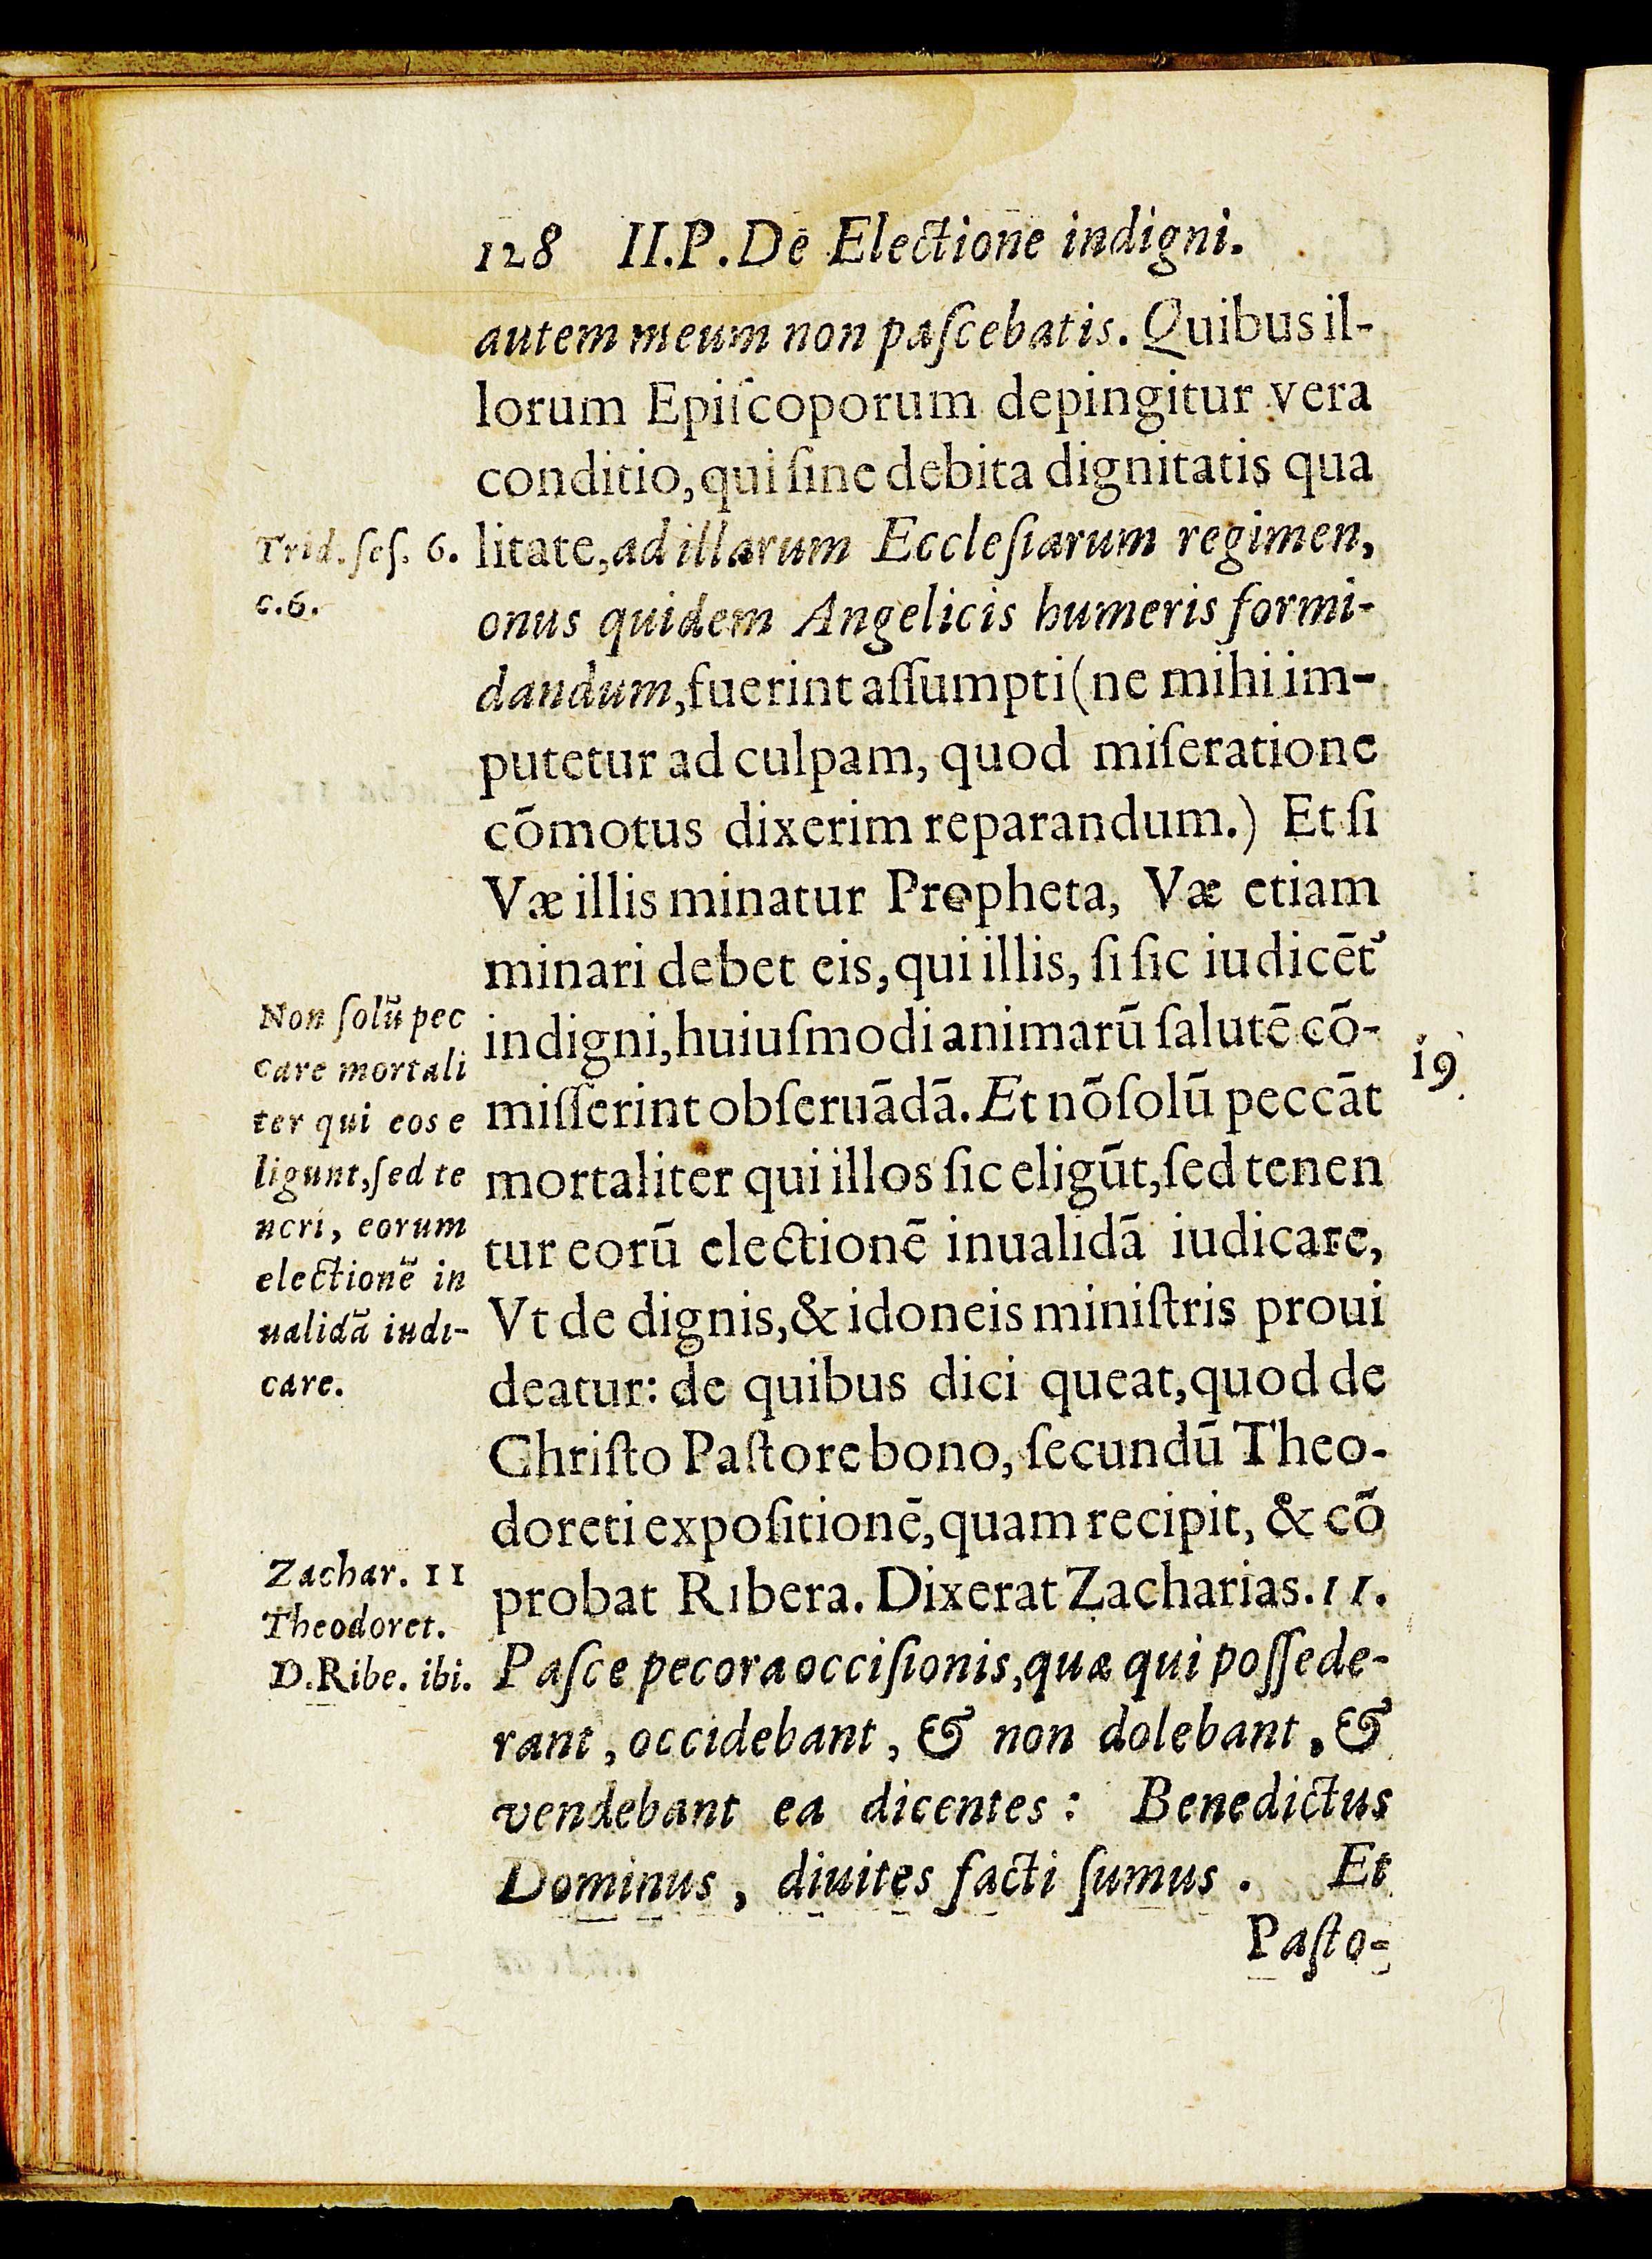 128 II.P. De Electione indigni.
autem meum non paſcebatis. Quibus il-
lorum Epiſcoporum depingitur vera
conditio, qui ſine debita dignitatis qua
litate, ad illarum Eccleſiarum regimen,
onus quidem Angelicis humeris formi-
dandum, fuerint aſſumpti (ne mihi im-
putetur ad culpam, quod miſeratione
cōmotus dixerim reparandum.) Et ſi
Væ illis minatur Propheta, Væ etiam
minari debet eis, qui illis, ſi ſic iudicēt᷑
indigni, huiuſmodi animarū ſalutē cō-
miſſerint obſeruādā. Et nō ſolū peccāt
mortaliter qui illos ſic eligūt, ſed tenen
tur eorū electionē inualidā iudicare,
Vt de dignis, & idoneis miniſtris proui
deatur: de quibus dici queat, quod de
Chriſto Paſtore bono, ſecundū Theo-
doreti expoſitionē, quam recipit, & cō
probat Ribera. Dixerat Zacharias. 11.
Paſce pecora occiſionis, quæ qui poſſede-
rant, occidebant, & non dolebant, &
vendebant ea dicentes: Benedictus
Dominus, diuites facti ſumus. Et
Paſto-
Trid. ſeſ. 6.
c. 6.
Non ſolū pec
care mortali
ter qui eos e
ligunt, ſed te
neri, eorum
electionē in
ualidā iudi-
care.
Zachar. 11
Theodoret.
D. Ribe. ibi.
19